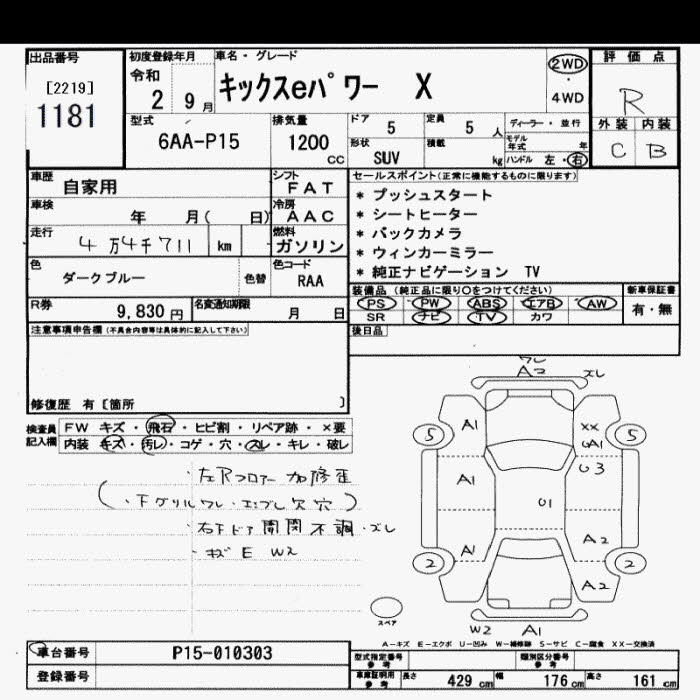 出品番号
[2219]
1181
初度登録年月
令和
2 9月
車名・グレード
キックスeパワー X
2WD
・
4WD
評価点
R
外装 内装
C B
型式
6AA-P15
排気量
1200
cc
ドア
5
定員
5 人
形状
SUV
積載
kg
ディーラー・並行
モデル年式 年
ハンドル 左・右
車歴
自家用
シフト
FAT
車検
年 月( 日)
冷房
AAC
走行
4万4千711 km
燃料
ガソリン
色
ダークブルー
色替
色コード
RAA
R券
9,830 円
名変通知期限
月 日
セールスポイント(正常に機能するものに限ります)
* プッシュスタート
* シートヒーター
* バックカメラ
* ウィンカーミラー
* 純正ナビゲーション TV
装備品 (純正品に限り○をつけてください)
PS PW ABS エアB AW
SR ナビ TV カワ
新車保証書
有・無
後日品
注意事項申告欄(不具合内容等は具体的に記入して下さい)
修復歴 有〔箇所 〕
検査員
記入欄
FW キズ・飛石・ヒビ割・リペア跡・×要
内装 キズ・汚レ・コゲ・穴・スレ・キレ・破レ
・左Rフロアー 加修歪
(・下グリルワレ・エンブレ欠穴)
・右FドアP開閉不調・ズレ
・キズ E W2
ワレ
A2 ズレ
5 A1 XX 5
UA1
A1 U3
U1
A1 A2
2 2
A2
スペア
W2 A1
A-キズ E-エクボ U-凹み W-補修跡 S-サビ C-腐食 XX-交換済
車台番号
P15-010303
登録番号
型式指定番号
参考
類別区分番号
参考
車庫証明用
参考
長さ 429 cm 幅 176 cm 高さ 161 cm